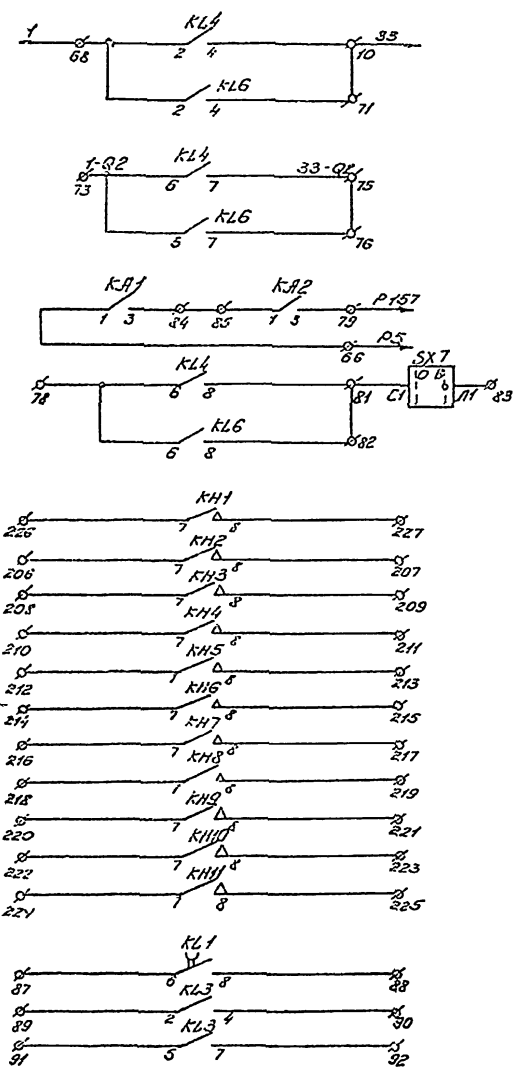 1 KL4 33
68 2 4 10
KL6
2 4 71
1-Q2 KL4 33-Q2
73 6 7 75
KL6
5 7 76
KA1 KA2 P157
1 3 84 85 1 3 79
P5
66
KL4 SX7
78 6 8 81 C1 Л1 83
KL6
6 8 82
KH1
226 7 8 227
KH2
206 7 8 207
KH3
208 7 8 209
KH4
210 7 8 211
KH5
212 7 8 213
KH6
214 7 8 215
KH7
216 7 8 217
KH8
218 7 8 219
KH9
220 7 8 221
KH10
222 7 8 223
KH11
224 7 8 225
KL1
87 6 8 88
KL3
89 2 4 90
KL3
91 5 7 92